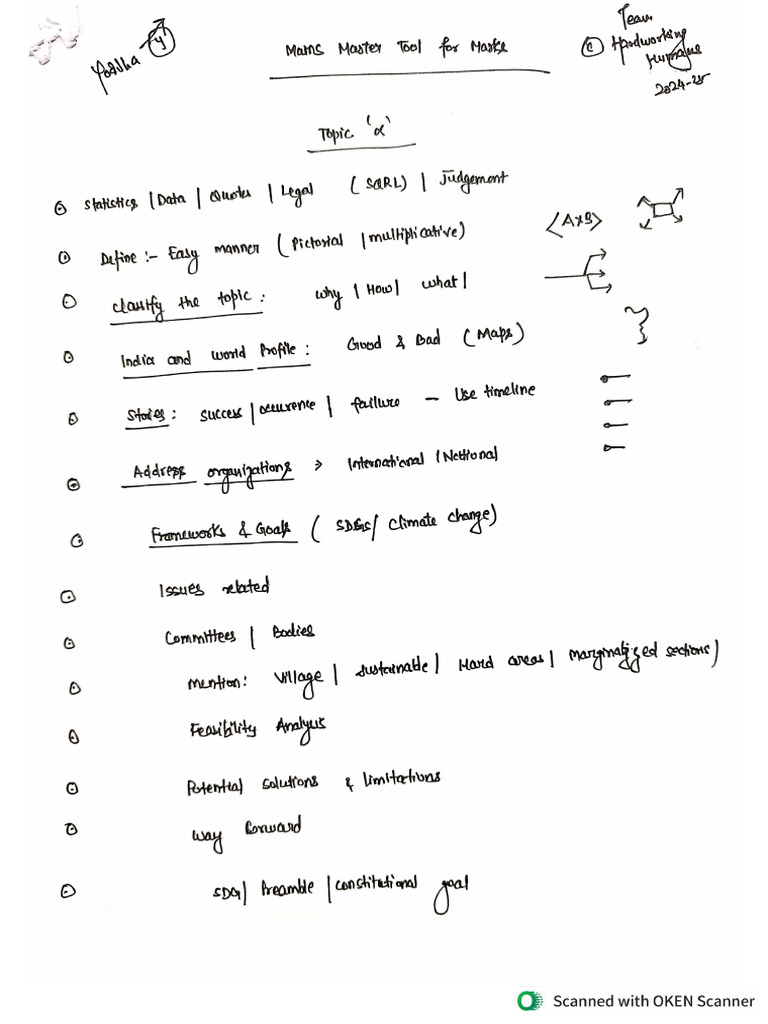 Yoddha Y
Mains Master Tool for Marks
Team
Hardworking
Humans
2024-25
Topic 'α'
Statistics | Data | Quotes | Legal (SQRL) | Judgement
Define :- Easy manner (Pictorial | multiplicative) <AxB>
Classify the topic : why | How | what |
India and world Profile : Good & Bad (Maps)
Stories : success | occurence | failure - Use timeline
Address organizations > International | National
Frameworks & Goals ( SDGs / climate change)
Issues related
Committees | Bodies
mention: village | sustainable | Hard areas | marginalized sections )
Feasibility Analysis
Potential solutions & limitations
way forward
SDG | Preamble | constitutional goal
Scanned with OKEN Scanner